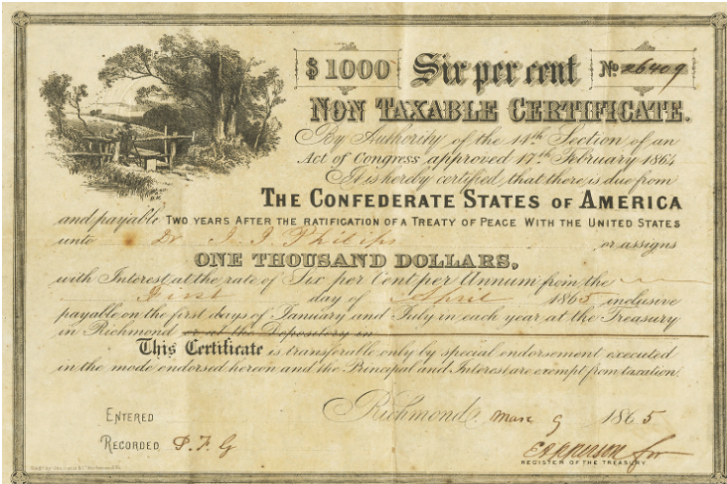 $1000 Six per cent No 26409
NON TAXABLE CERTIFICATE.
By Authority of the 14th Section of an
Act of Congress approved 17th February 1864
It is hereby certified that there is due from
THE CONFEDERATE STATES OF AMERICA
and payable TWO YEARS AFTER THE RATIFICATION OF A TREATY OF PEACE WITH THE UNITED STATES
unto Dr J. J. Philips or assigns
ONE THOUSAND DOLLARS,
with Interest at the rate of Six per Cent per Annum from the
First day of April 1865 inclusive
payable on the first days of January and July in each year at the Treasury
in Richmond or at the Depository in
This Certificate is transferable only by special endorsement executed
in the mode endorsed hereon and the Principal and Interest are exempt from taxation.
Richmond, Mar 9 1865
ENTERED
RECORDED
for
REGISTER OF THE TREASURY